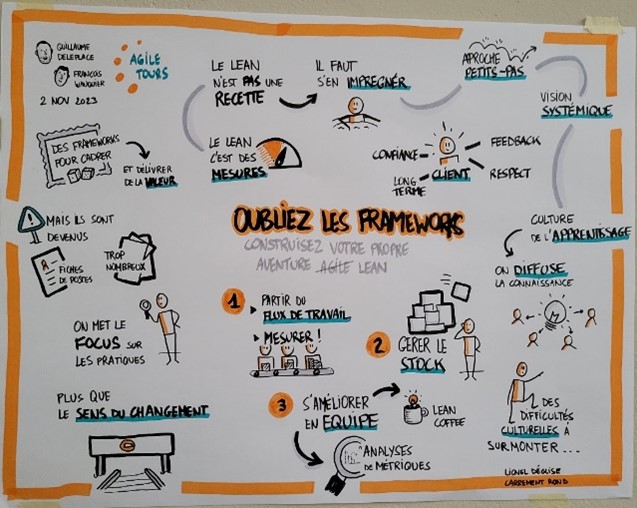 GUILLAUME
DELEPLACE
FRANÇOIS
2 NOV 2023
AGILE
TOURS
DES FRAMEWORKS
POUR CADRER
ET DÉLIVRER
DE LA VALEUR
MAIS ILS SONT
DEVENUS
FICHES
DE POSTES
TROP
NOMBREUX
ON MET LE
FOCUS SUR
LES PRATIQUES
PLUS QUE
LE SENS DU CHANGEMENT
LE LEAN
N'EST PAS UNE
RECETTE
IL FAUT
S'EN IMPREGNER
APROCHE
PETITS-PAS
VISION
SYSTÉMIQUE
LE LEAN
C'EST DES
MESURES
CONFIANCE
LONG
TERME
CLIENT
FEEDBACK
RESPECT
CULTURE
DE L'APPRENTISSAGE
ON DIFFUSE
LA CONNAISSANCE
DES
DIFFICULTÉS
CULTURELLES À
SURMONTER...
OUBLIEZ LES FRAMEWORKS
CONSTRUISEZ VOTRE PROPRE
AVENTURE AGILE LEAN
1
PARTIR DU
FLUX DE TRAVAIL
MESURER !
2
GÉRER LE
STOCK
3
S'AMÉLIORER
EN EQUIPE
LEAN
COFFEE
ANALYSES
DE MÉTRIQUES
LIONEL DÉGLISE
CARREMENT ROND